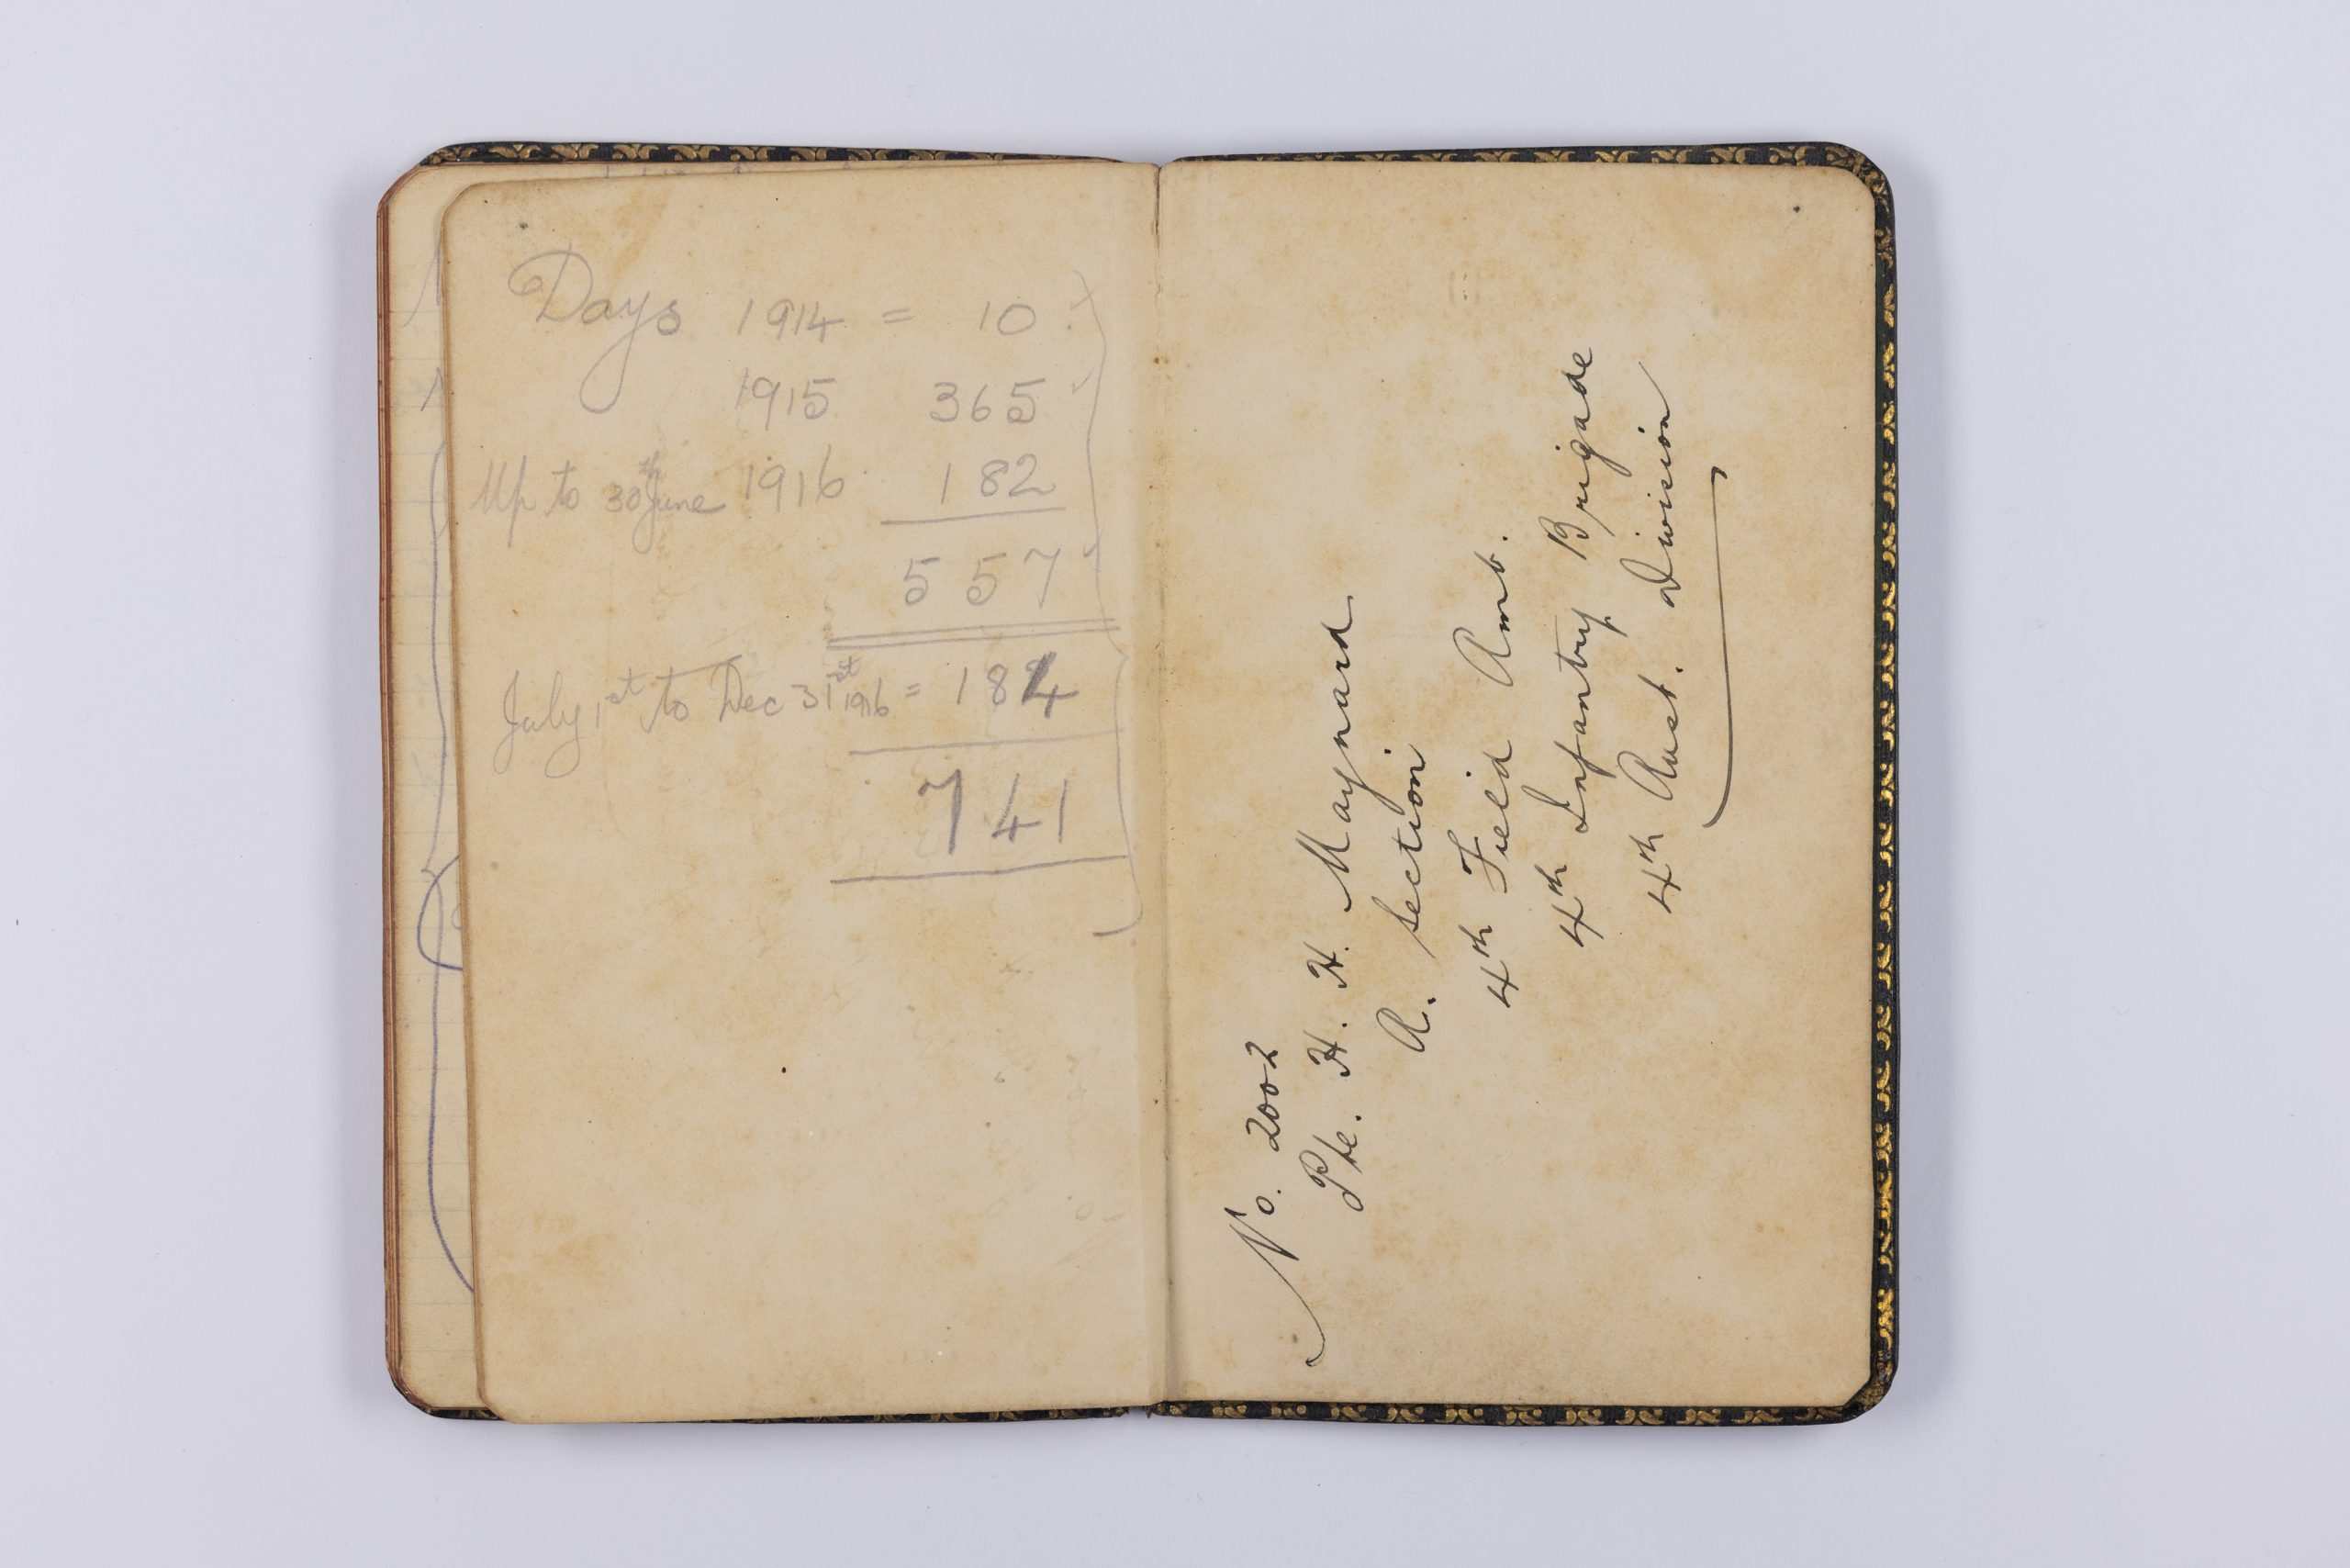 Days 1914 = 10
1915 365
Up to 30th June 1916 182
557
July 1st to Dec 31st 1916 = 184
741
No. 2002
Pte. H. H. Maynard
A. Section
4th Field Amb.
4th Infantry Brigade
4th Aust. Division